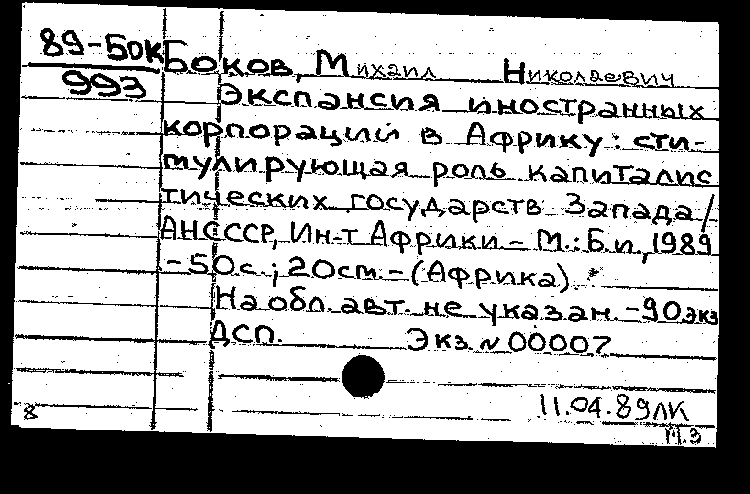 89-БОК Боков, Михаил Николаевич
993
Экспансия иностранных
корпораций в Африку: сти-
мулирующая роль капиталис
тических государств Запада/
АНСССР, Ин-т Африки - М.: Б.и., 1989
-50с.; 20см. - (Африка).
На обл. авт. не указан. - 90экз
ДСП. Экз. № 00007
11.04.89ЛК
8
М.З